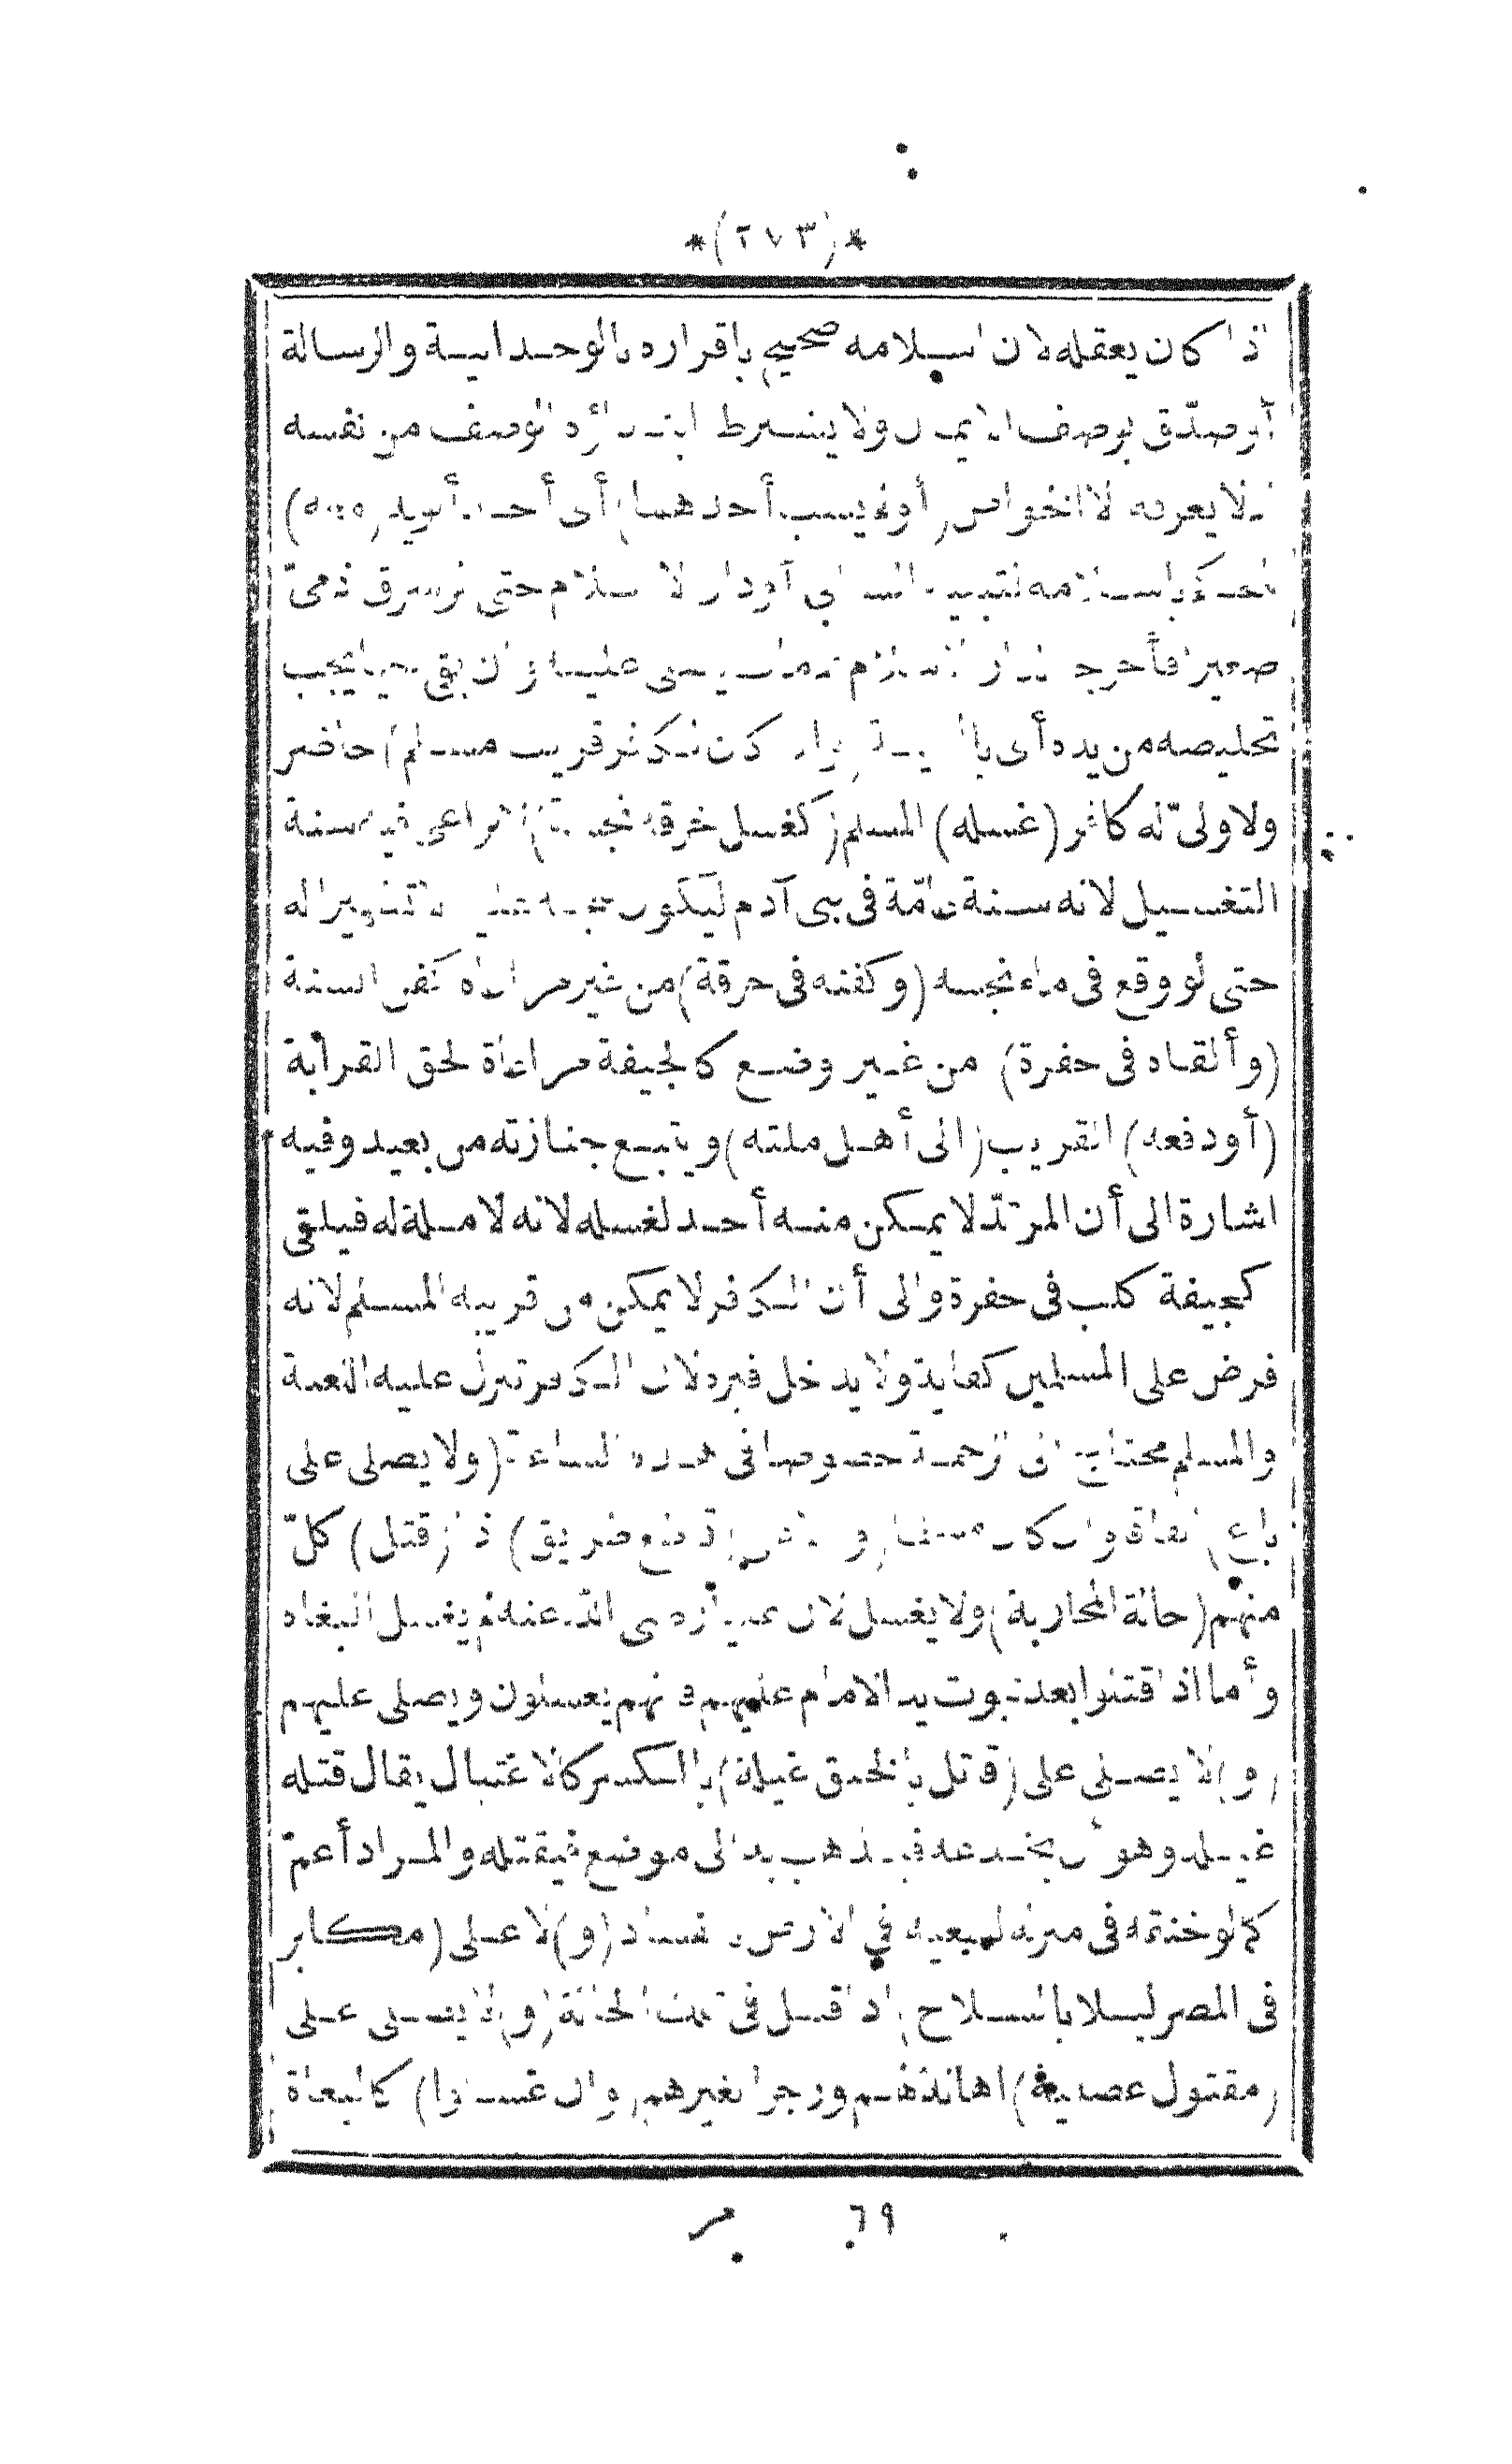 *(٢٧٣)*
اذا كان يعقله لان اسلامه صحيح باقراره بالوحدانية والرسالة
أو صدّق بوصف الايمان ولا يشترط ابتداؤه الوصف من نفسه
لا يعرفه الا الخواص (أو لم يسب أحدهما) أى أحد أبويه (معه)
باسلامه السابي أو دار الاسلام حتى لو سرق ذمىّ
صغيرا فأخرج دار الاسلام يصلى عليه وان بقي حيا يجب
تخليصه من يده أى (وان كان لكافر قريب مسلم) حاضر
ولا ولىّ له كافر (غسله) المسلم (كغسل خرقة نجسة) لا يراعى فيه سنة
التغسيل لانه سنة عامّة فى بنى آدم ليكون حجة عليه لا تطهيرا له
حتى لو وقع فى ماء نجسه (وكفنه فى خرقة) من غير مراعاة كفن السنة
(وألقاه فى حفرة) من غير وضع كالجيفة مراعاة لحق القرابة
(أو دفعه) القريب (الى أهل ملته) ويتبع جنازته من بعيد وفيه
اشارة الى أن المرتدّ لا يمكن منه أحد لغسله لانه لا ملة له فيلقى
كجيفة كلب فى حفرة والى أن الكافر لا يمكن من قريبه المسلم لانه
فرض على المسلمين كفاية ولا يدخل قبره لان الكافر تنزل عليه اللعنة
والمسلم محتاج الى الرحمة خصوصا فى هذه الساعة (ولا يصلى على
باغ) اتفاقا وان كان مسلما (و) لا على (قاطع طريق) اذا (قتل) كلّ
منهم (حالة المحاربة) ولا يغسل لان عليا رضى الله عنه لم يغسل البغاة
وأما اذا قتلوا بعد ثبوت يد الامام عليهم فانهم يغسلون ويصلى عليهم
(و) لا يصلى على (قاتل بالخنق غيلة) بالكسر كالاغتيال يقال قتله
غيلة وهو أن يخدعه فيذهب به الى موضع فيقتله والمراد أعمّ
كما لو خنقه فى منزله لسعيه في الارض بالفساد (و) لا على (مكابر
فى المصر ليلا بالسلاح) اذا قتل فى تلك الحالة (و) لا يصلى على
(مقتول عصبية) اهانة لهم وزجرا لغيرهم (وان غسلوا) كالبغاة
٦٩
مر